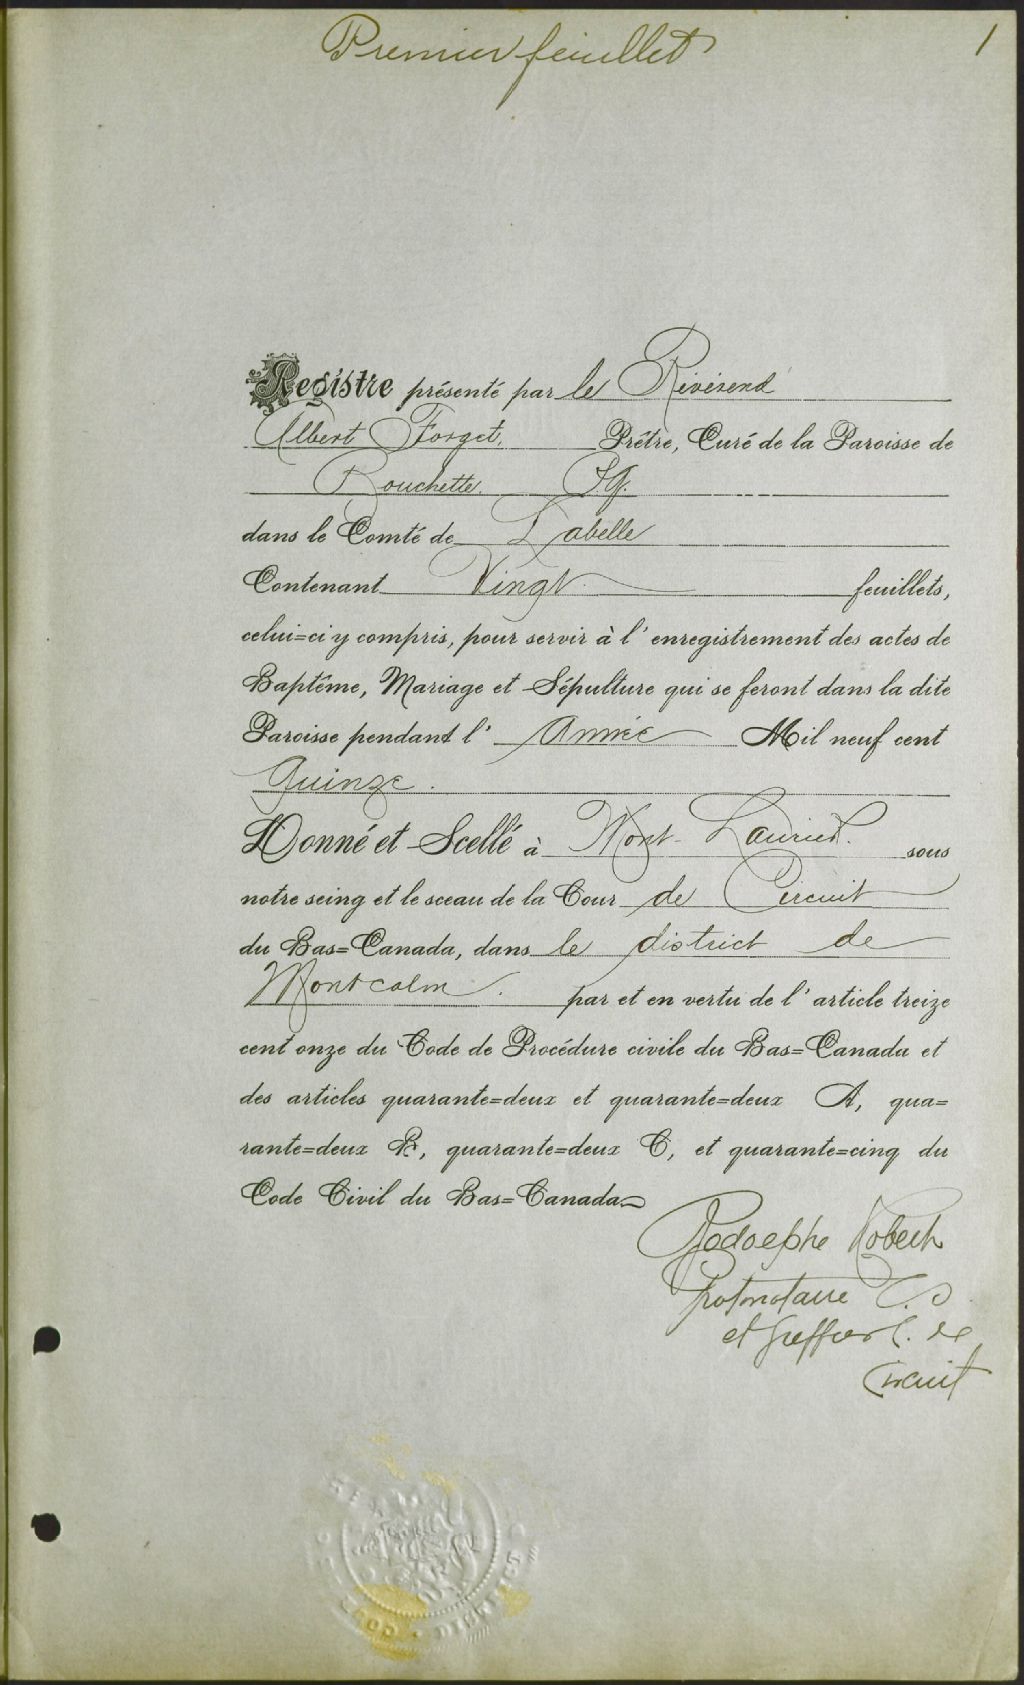 Premier feuillet
1
Registre présenté par le Révérend
Albert Forget, Prêtre, Curé de la Paroisse de
Bouchette.
dans le Comté de Labelle
Contenant Vingt feuillets,
celui=ci y compris, pour servir à l'enregistrement des actes de
Baptême, Mariage et Sépulture qui se feront dans la dite
Paroisse pendant l'Année Mil neuf cent
Quinze.
Donné et Scellé à Mont-Laurier. sous
notre seing et le sceau de la Cour de Circuit
du Bas=Canada, dans le district de
Montcalm. par et en vertu de l'article treize
cent onze du Code de Procédure civile du Bas=Canada et
des articles quarante=deux et quarante=deux A, qua=
rante=deux B, quarante=deux C, et quarante=cinq du
Code Civil du Bas=Canada
Rodolphe Robert
Protonotaire C. S
et Greffier C. de
Circuit
DISTRICT